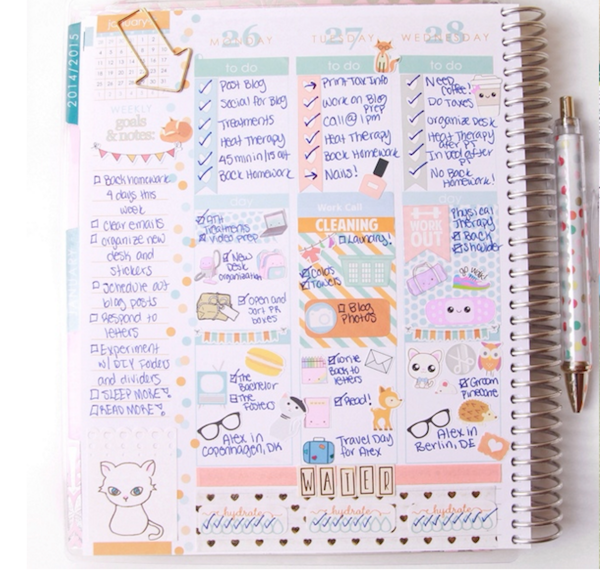 january
2014/2015
WEEKLY
goals
& notes:
Back homework
4 days this
week
clear emails
organize new
desk and
stickers
Schedule out
blog posts
Respond to
letters
Experiment
w/ DIY folders
and dividers
SLEEP MORE
READ MORE
26
MONDAY
to do
Post Blog
Social for Blog
Treatments
Heat Therapy
45 min in
Back Homework
day
Treatments
Video prep
New
Desk
organization
Open and
sort PR
boxes
The
Bachelor
The
Fosters
Alex in
Copenhagen, DK
27
TUESDAY
to do
Print Tax Info
Work on Blog
Prep
Call @ 1pm
Heat Therapy
Back Homework
Nails!
Work Call
CLEANING
Laundry!
Colds
Towers
Blog
Photos
Write
Back to
letters
Read!
Travel Day
for Alex
28
WEDNESDAY
to do
Need
Coffee!
Do Taxes
Organize Desk
Heat Therapy
after PT
In bed after
PT
No Back
Homework!
day
WORK
OUT
Physical
Therapy
Back
Shoulder
go way!
Groom
Pinecone
Alex in
Berlin, DE
WATER
hydrate
hydrate
hydrate